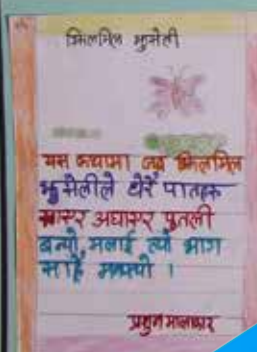 झिलमिल झुसेली
यस कथामा जब झिलमिल
झुसेलीले धेरै पातहरू
खाएर अघाएर पुतली
बन्यो, मलाई त्यो भाग
साह्रै मनपर्‍यो ।
प्रशुन मालाकार